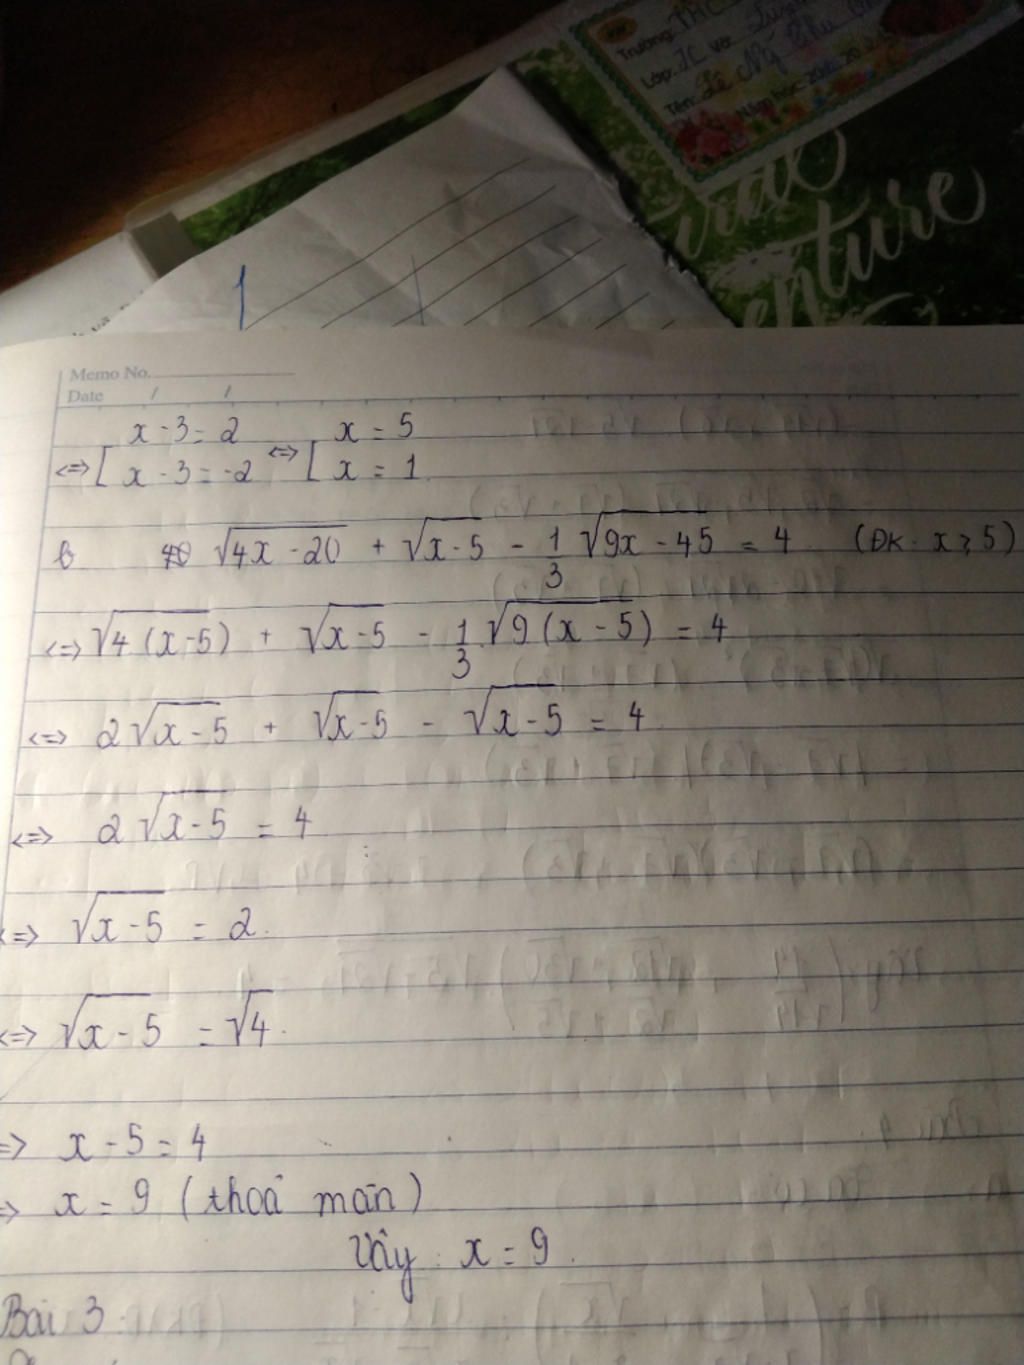 Trường: THC
Lớp: 7C Vở:
Tên: Lê Mỹ
Năm học: 20
enture
Memo No.
Date / /
x - 3 = 2 x = 5
<=> [ x - 3 = -2 <=> [ x = 1
b √(4x - 20) + √(x - 5) - 1/3 √(9x - 45) = 4 (ĐK: x ≥ 5)
<=> √(4(x - 5)) + √(x - 5) - 1/3 √(9(x - 5)) = 4
<=> 2√(x - 5) + √(x - 5) - √(x - 5) = 4
<=> 2√(x - 5) = 4
<=> √(x - 5) = 2.
<=> √(x - 5) = √4.
=> x - 5 = 4
=> x = 9 (thoả mãn)
Vậy: x = 9.
Bài 3